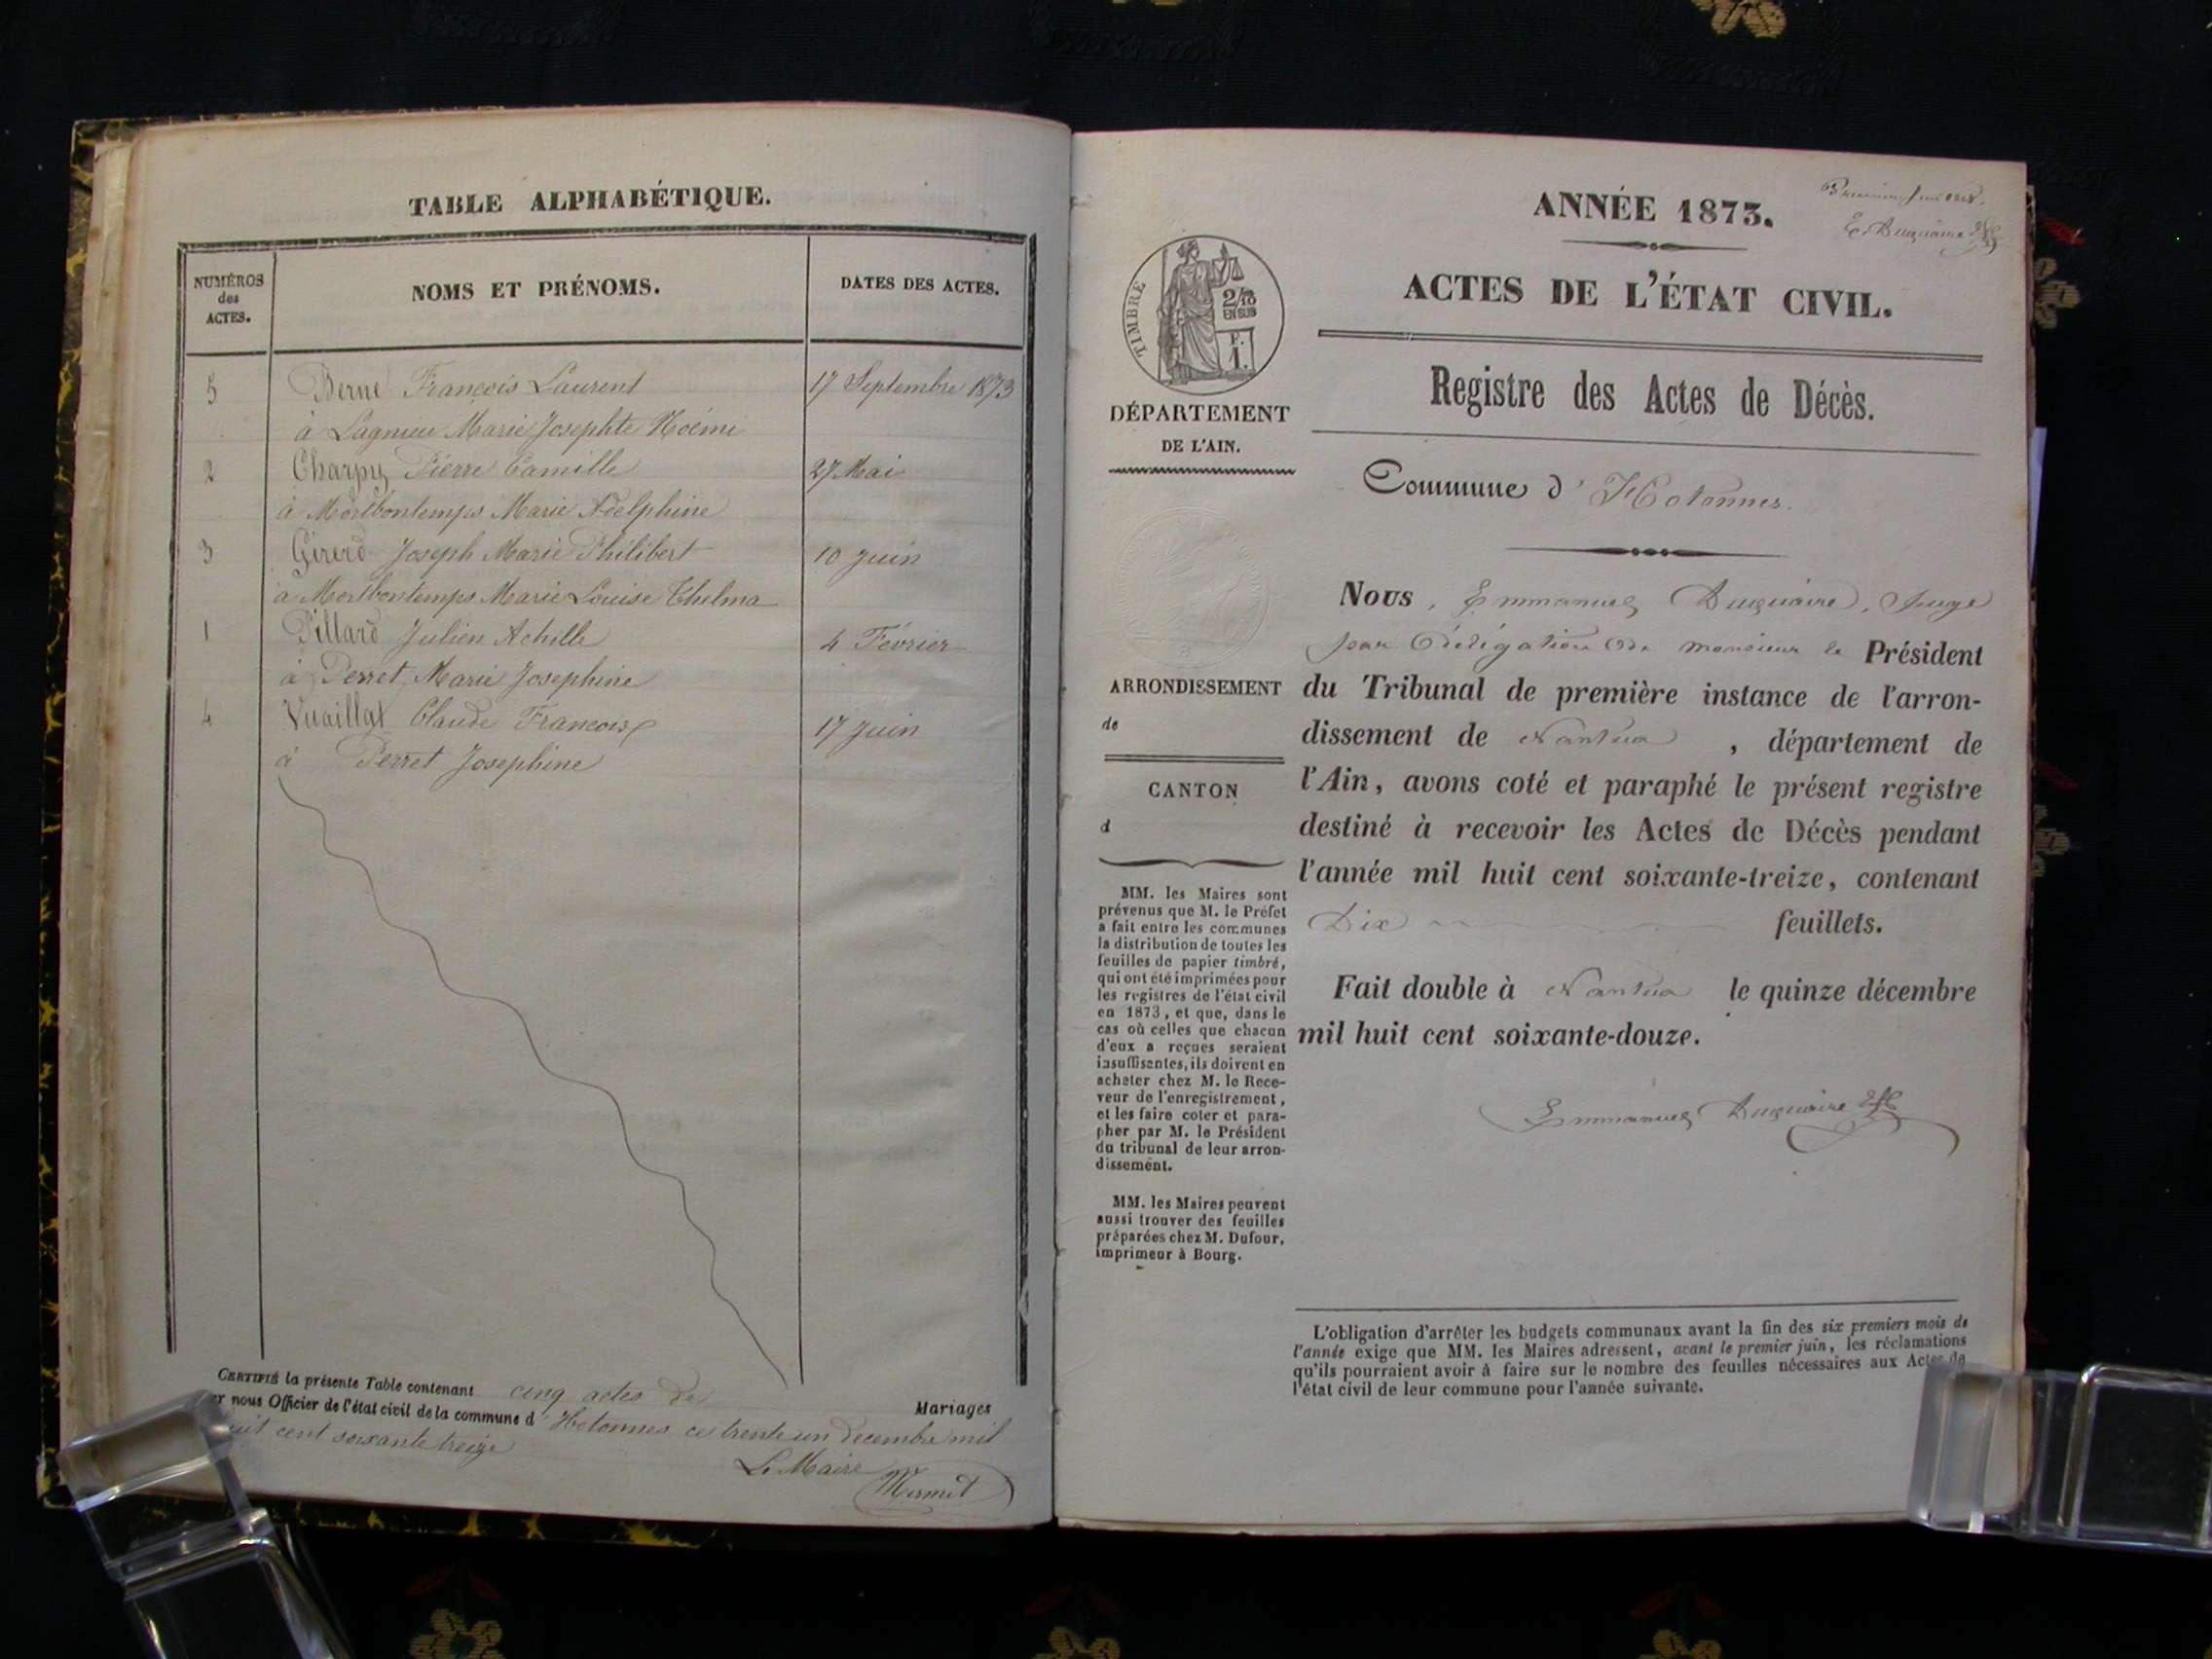 TABLE ALPHABÉTIQUE.
NUMÉROS
des
ACTES.
NOMS ET PRÉNOMS.
DATES DES ACTES.
5 Berne François Laurent 17 Septembre 1873
à Lagnieu Marie Josephte Noémi
2 Charpy Pierre Camille 27 Mai
à Morlbontemps Marie Adelphine
3 Girerd Joseph Marie Philibert 10 Juin
à Morlbontemps Marie Louise Thelma
1 Pillard Julien Achille 4 Février
à Perret Marie Josephine
4 Vuaillat Claude François 17 Juin
à Perret Josephine
CERTIFIÉ la présente Table contenant cinq actes de Mariages
er nous Officier de l'état civil de la commune d'Hotonnes ce trente un decembre mil
uit cent soixante treize
Le Maire
Mermet
ANNÉE 1873.
E. Duquaire
ACTES DE L'ÉTAT CIVIL.
Registre des Actes de Décès.
TIMBRE
2/10
EN SUS
F.
1.
DÉPARTEMENT
DE L'AIN.
Commune d'Hotonnes.
Nous, Emmanuel Duquaire, Juge
par délégation de monsieur le Président
du Tribunal de première instance de l'arron-
dissement de Nantua, département de
l'Ain, avons coté et paraphé le présent registre
destiné à recevoir les Actes de Décès pendant
l'année mil huit cent soixante-treize, contenant
Dix feuillets.
Fait double à Nantua le quinze décembre
mil huit cent soixante-douze.
Emmanuel Duquaire
ARRONDISSEMENT
de
CANTON
d
MM. les Maires sont
prévenus que M. le Préfet
a fait entre les communes
la distribution de toutes les
feuilles de papier timbré,
qui ont été imprimées pour
les registres de l'état civil
en 1873, et que, dans le
cas où celles que chacun
d'eux a reçues seraient
insuffisantes, ils doivent en
acheter chez M. le Rece-
veur de l'enregistrement,
et les faire coter et para-
pher par M. le Président
du tribunal de leur arron-
dissement.
MM. les Maires peuvent
aussi trouver des feuilles
préparées chez M. Dufour,
imprimeur à Bourg.
L'obligation d'arrêter les budgets communaux avant la fin des six premiers mois de
l'année exige que MM. les Maires adressent, avant le premier juin, les réclamations
qu'ils pourraient avoir à faire sur le nombre des feuilles nécessaires aux Actes de
l'état civil de leur commune pour l'année suivante.